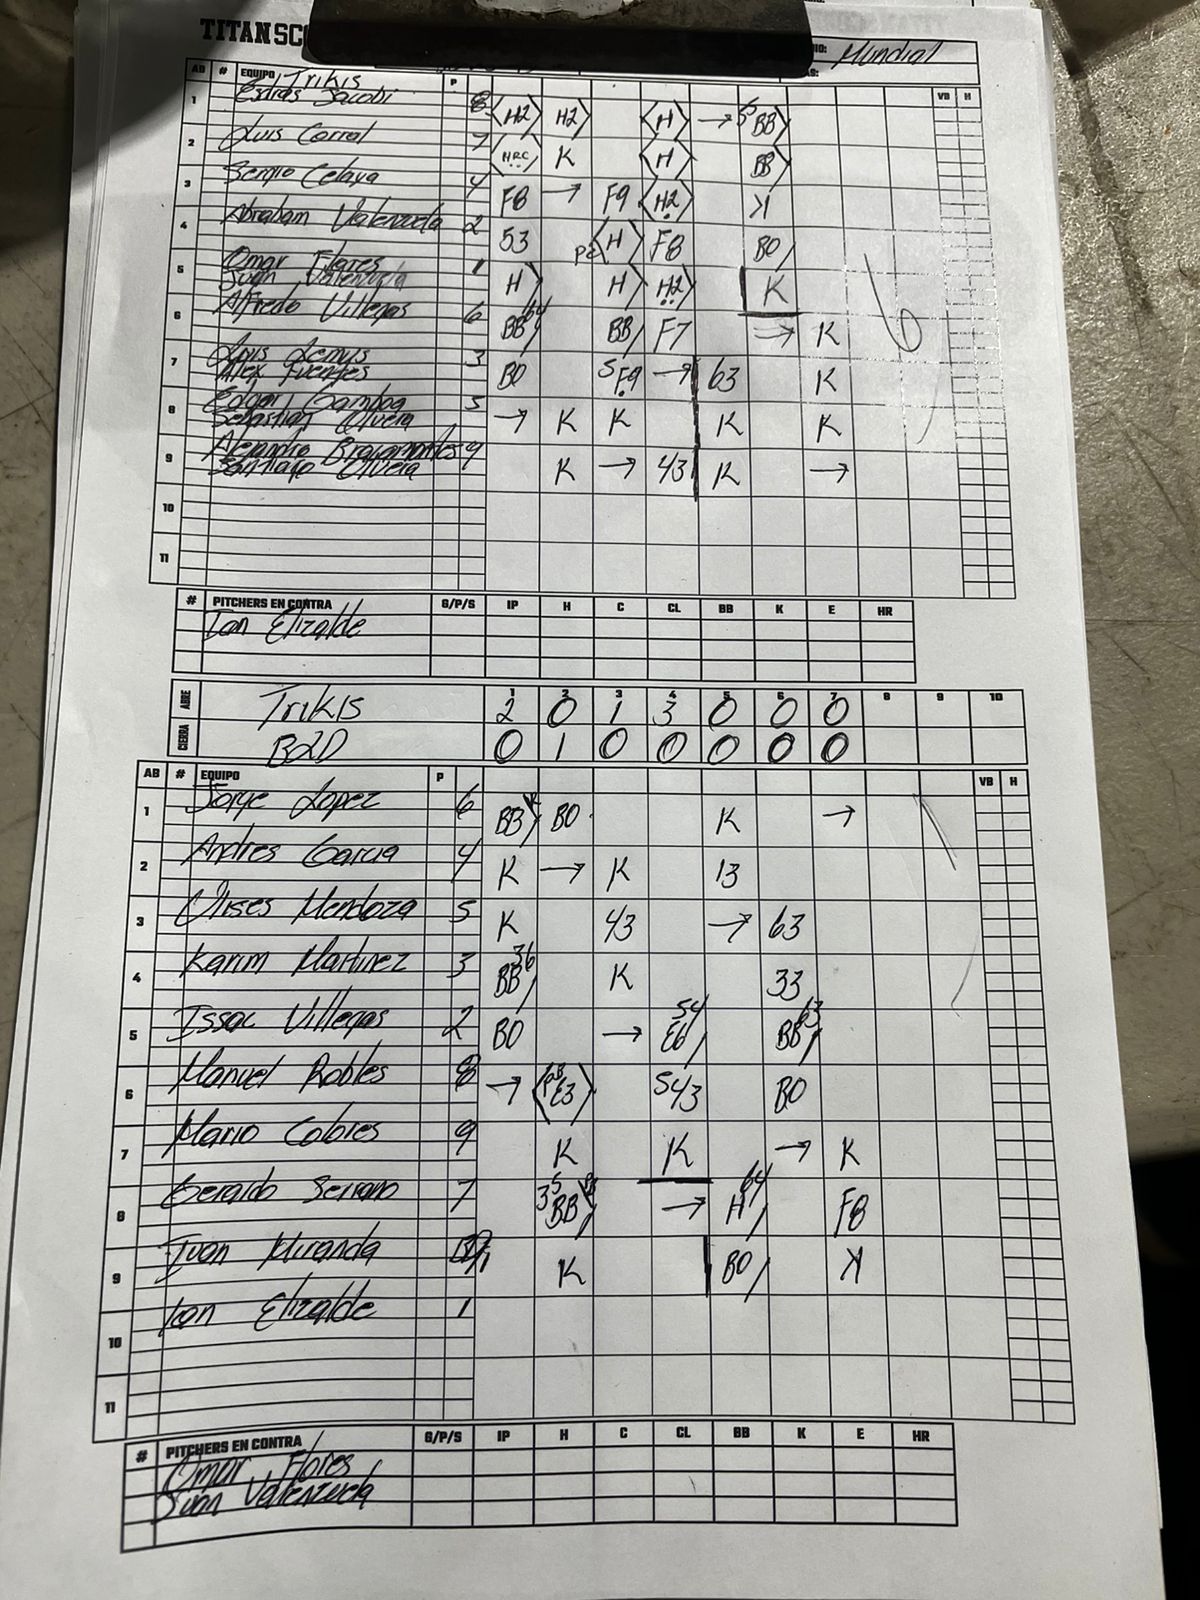 TITAN SC
Mundial
AB # EQUIPO Trikis P VB H
1 Esdras Jacobi 8 H2 H2 H → 5 BB
2 Luis Corral 7 HRC K H BB
3 Sergio Celaya 4 F8 → F9 H2 K
4 Abraham Valenzuela 2 53 PB H F8 BO
5 Omar Flores 1 H H H2 K
Juan Valenzuela
6 Alfredo Villegas 6 BB 64 BB F7 → K
7 Luis Lemus 3 BO 5 F9 → 63 K
Alex Fuentes
8 Edgar Gamboa 5 → K K K K
Sebastian Olvera
9 Alejandro Bracamontes 9 K → 43 K →
Santiago Olvera
10
11
6
# PITCHERS EN CONTRA G/P/S IP H C CL BB K E HR
Ian Elizalde
1 2 3 4 5 6 7 8 9 10
ABRE Trikis 2 0 1 3 0 0 0
CIERRA B2D 0 1 0 0 0 0 0
AB # EQUIPO P VB H
1 Jorge Lopez 6 BB BO K →
2 Andres Garcia 4 K → K 13
3 Ulises Mendoza 5 K 43 → 63
4 Karim Martinez 3 BB 36 K 33
5 Issac Villegas 2 BO → E6 54 BB 63
6 Manuel Robles 8 → E3 543 BO
7 Mario Colores 9 K K → K
8 Geraldo Serrano 7 35 BB → H 64 F8
9 Ivan Miranda K BO K
10 Ian Elizalde 1
11
# PITCHERS EN CONTRA G/P/S IP H C CL BB K E HR
Omar Flores
Juan Valenzuela